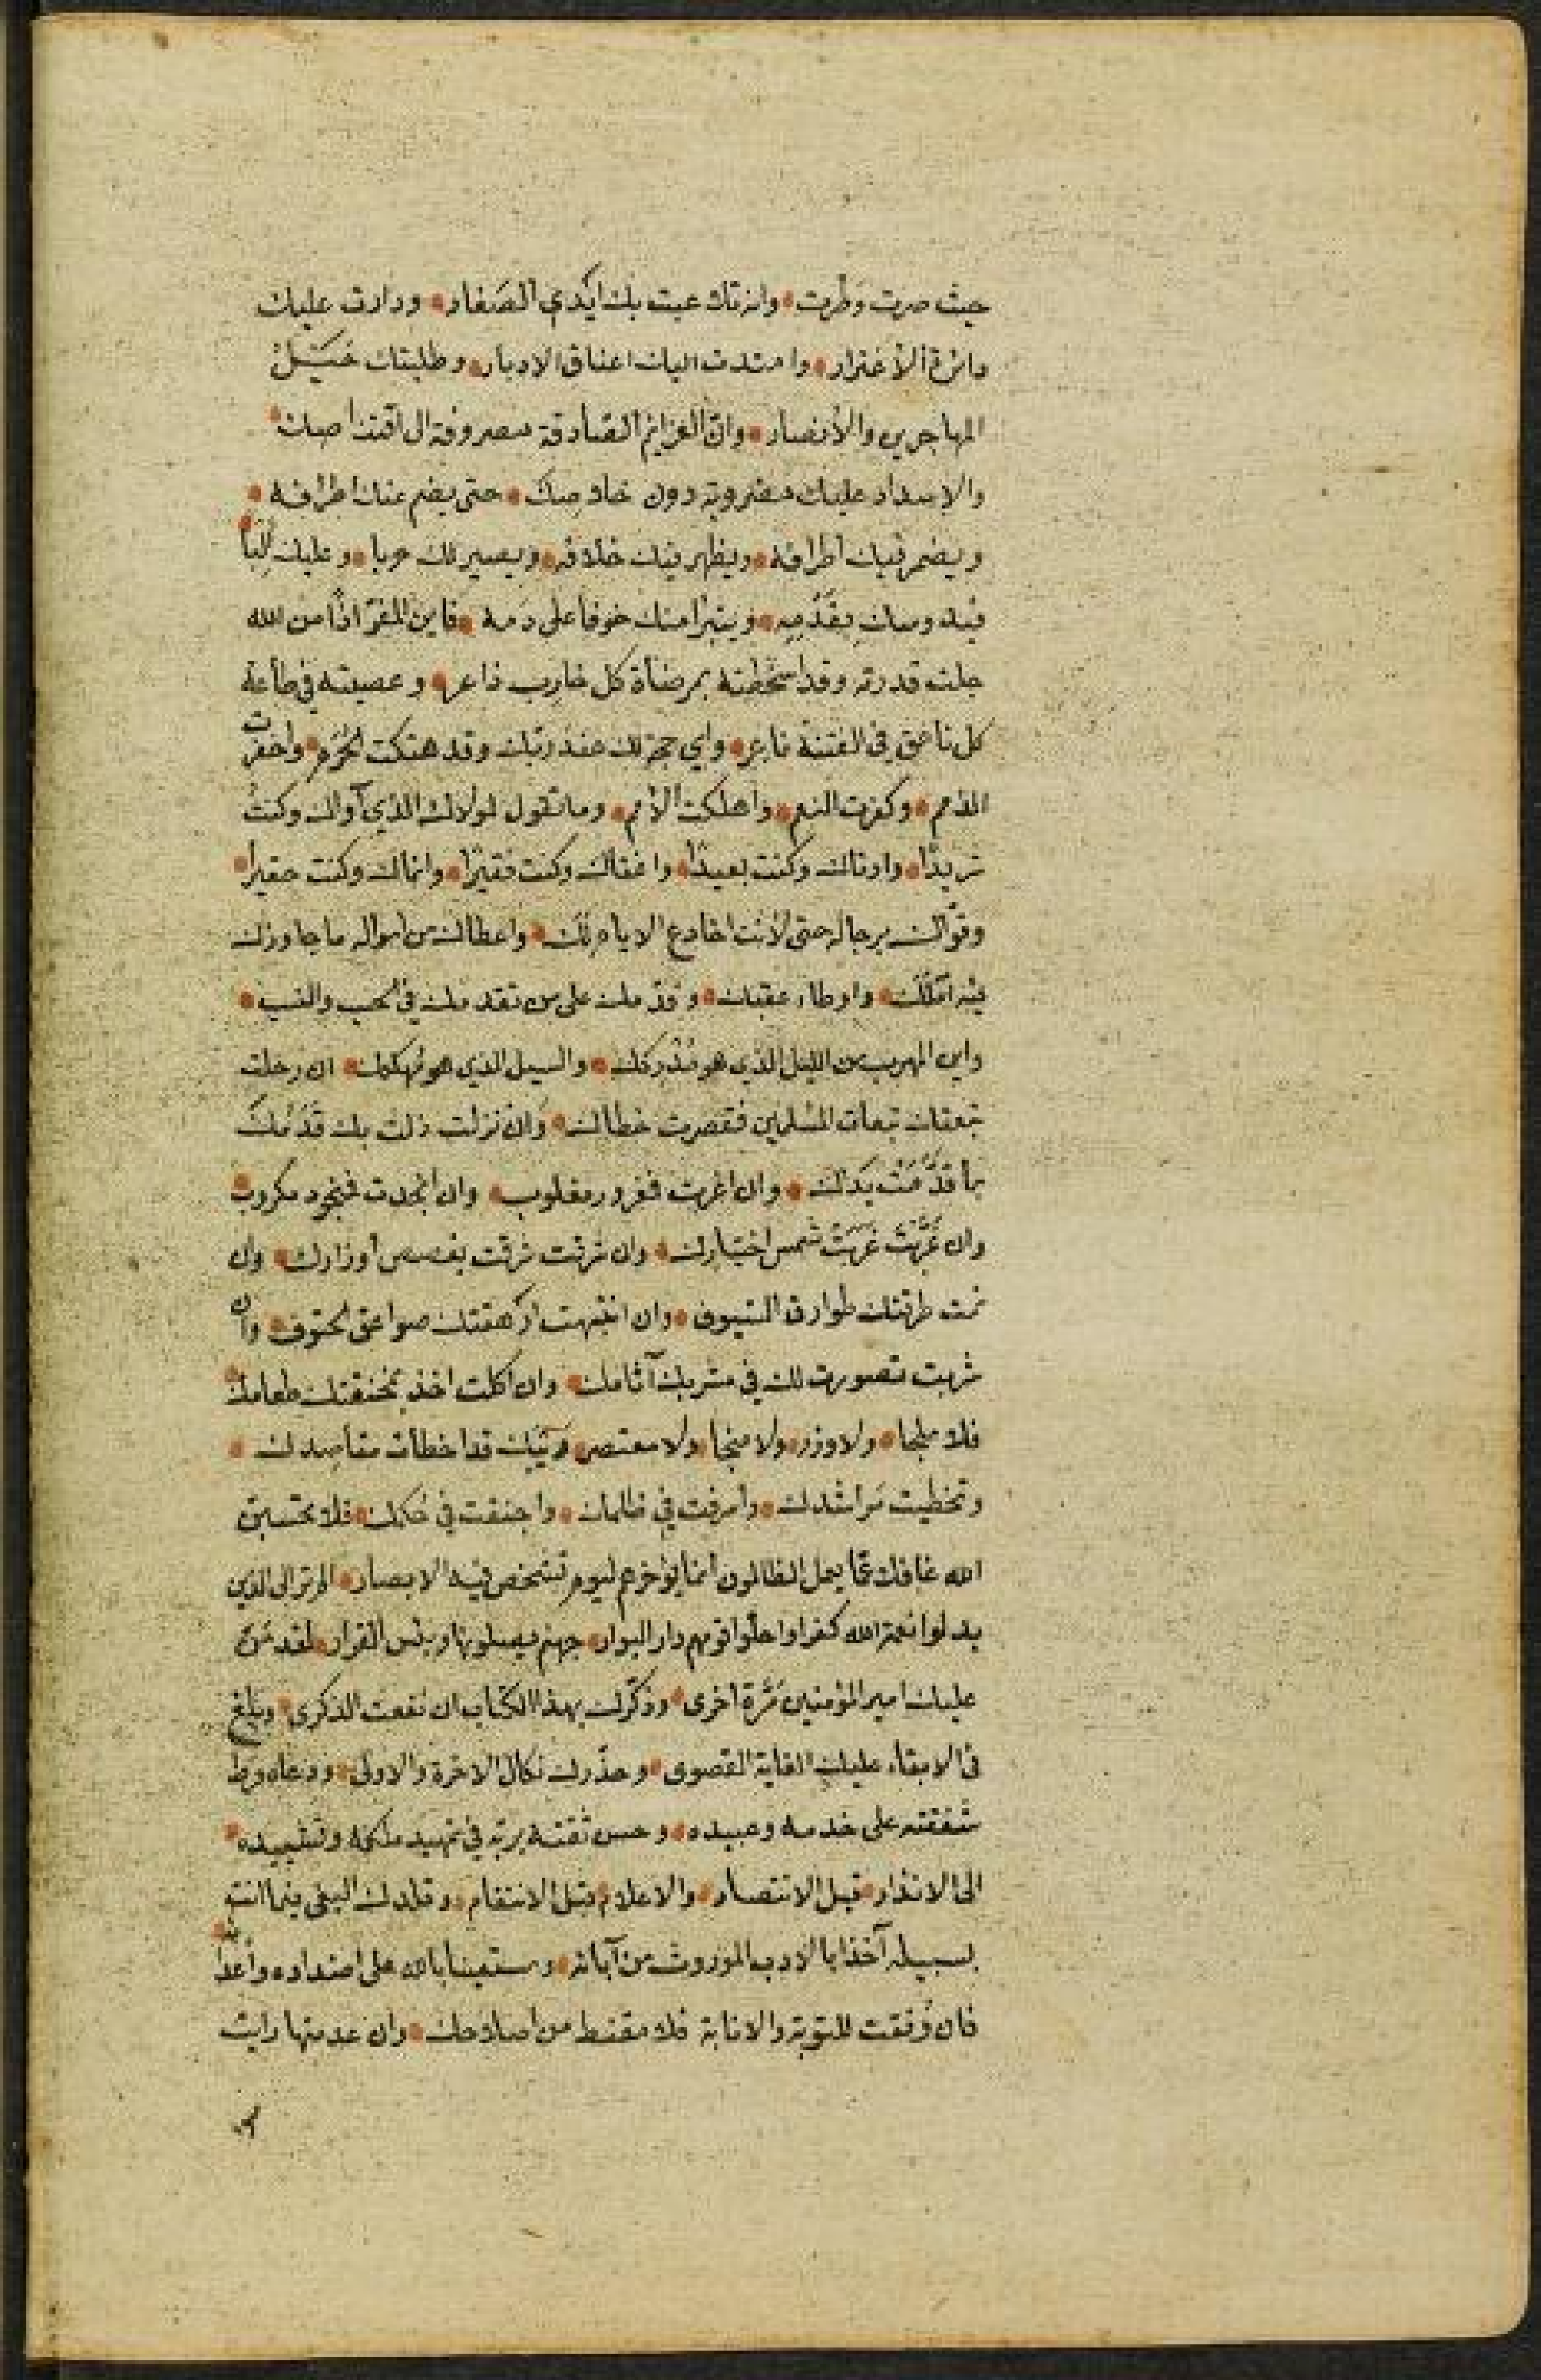 حيث صرت وطرت وانزتك عبت بك ايدي الصغار ودارت عليك
دائرة الاغترار وامتدت اليك اعناق الادبار وطلبتك خيل
المهاجرين والأنصار وان العزائم الصادقة مصروفة الى اقتناصك
والاسداد عليك مضروبة دون خلاصك حتى يضم عنك اطرافه
ويضم فيك اطرافه ويظهر فيك خلافه ويصير لك حربا وعليك إلبا
فيدوسك بقدمه ويتبرا منك خوفا على دمه فاين المفر اذا من الله
جلت قدرته وقد اسخطته بمرضاة كل خارب ذاعر وعصيته في طاعة
كل ناعق في الفتنة ناعر واي حجة لك عند ربك وقد هتكت الحرم واخفرت
الذمم وكفرت النعم واهلكت الأمم وما تقول لمولاك الذي آواك وكنت
شريدا وادناك وكنت بعيدا واغناك وكنت فقيرا وانماك وكنت حقيرا
وقواك برجاله حتى لانت اخادع الايام لك واعطاك من امواله ما جاوزت
فيه املك واوطاء عقبك وقدمك على من تقدمك في الحسب والنسب
واين المهرب من الليل الذي هو مدركك والسيل الذي هو مهلكك ان رحلت
تبعتك تبعات المسلمين فقصرت خطاك وان نزلت زلت بك قدمك
بما قدمت يداك وان اغرت فغرور مغلوب وان انجدت فمنجود مكروب
وان غربت غربت شمس اختيارك وان شرقت شرقت بغصص أوزارك وان
نمت طرقتك طوارق السيوف وان انتبهت ارهقتك صواعق الحتوف وان
شربت تصورت لك في مشربك آثامك وان اكلت اخذ بمخنقتك طعامك
فلا ملجا ولا وزر ولا منجا ولا معتصر قد اخطأت مقاصدك
وتخطيت مراشدك واسرفت في ظلمك واجنفت في حكمك فلا تحسبن
الله غافلا عما يعمل الظالمون انما يؤخرهم ليوم تشخص فيه الابصار الم تر الى الذين
بدلوا نعمة الله كفرا واحلوا قومهم دار البوار جهنم يصلونها وبئس القرار لقد من
عليك امير المؤمنين مرة اخرى وذكرك بهذا الكتاب ان نفعت الذكرى وبلغ
في الابقاء عليك الغاية القصوى وحذرك نكال الاخرة والاولى ودعاه فرط
شفقته على خدمه وعبيده وحسن ثقته بربه في تمهيد ملكه وتشييده
الى الانذار قبل الانتصار والاعلام قبل الانتقام وقلدك البغي فيما انت
بسبيله آخذا بالادب الموروث من آبائه ومستعينا بالله على اضداده واعدائه
فان وفقت للتوبة والانابة فلا مقنط من اصلاحك وان عدمتها رايت